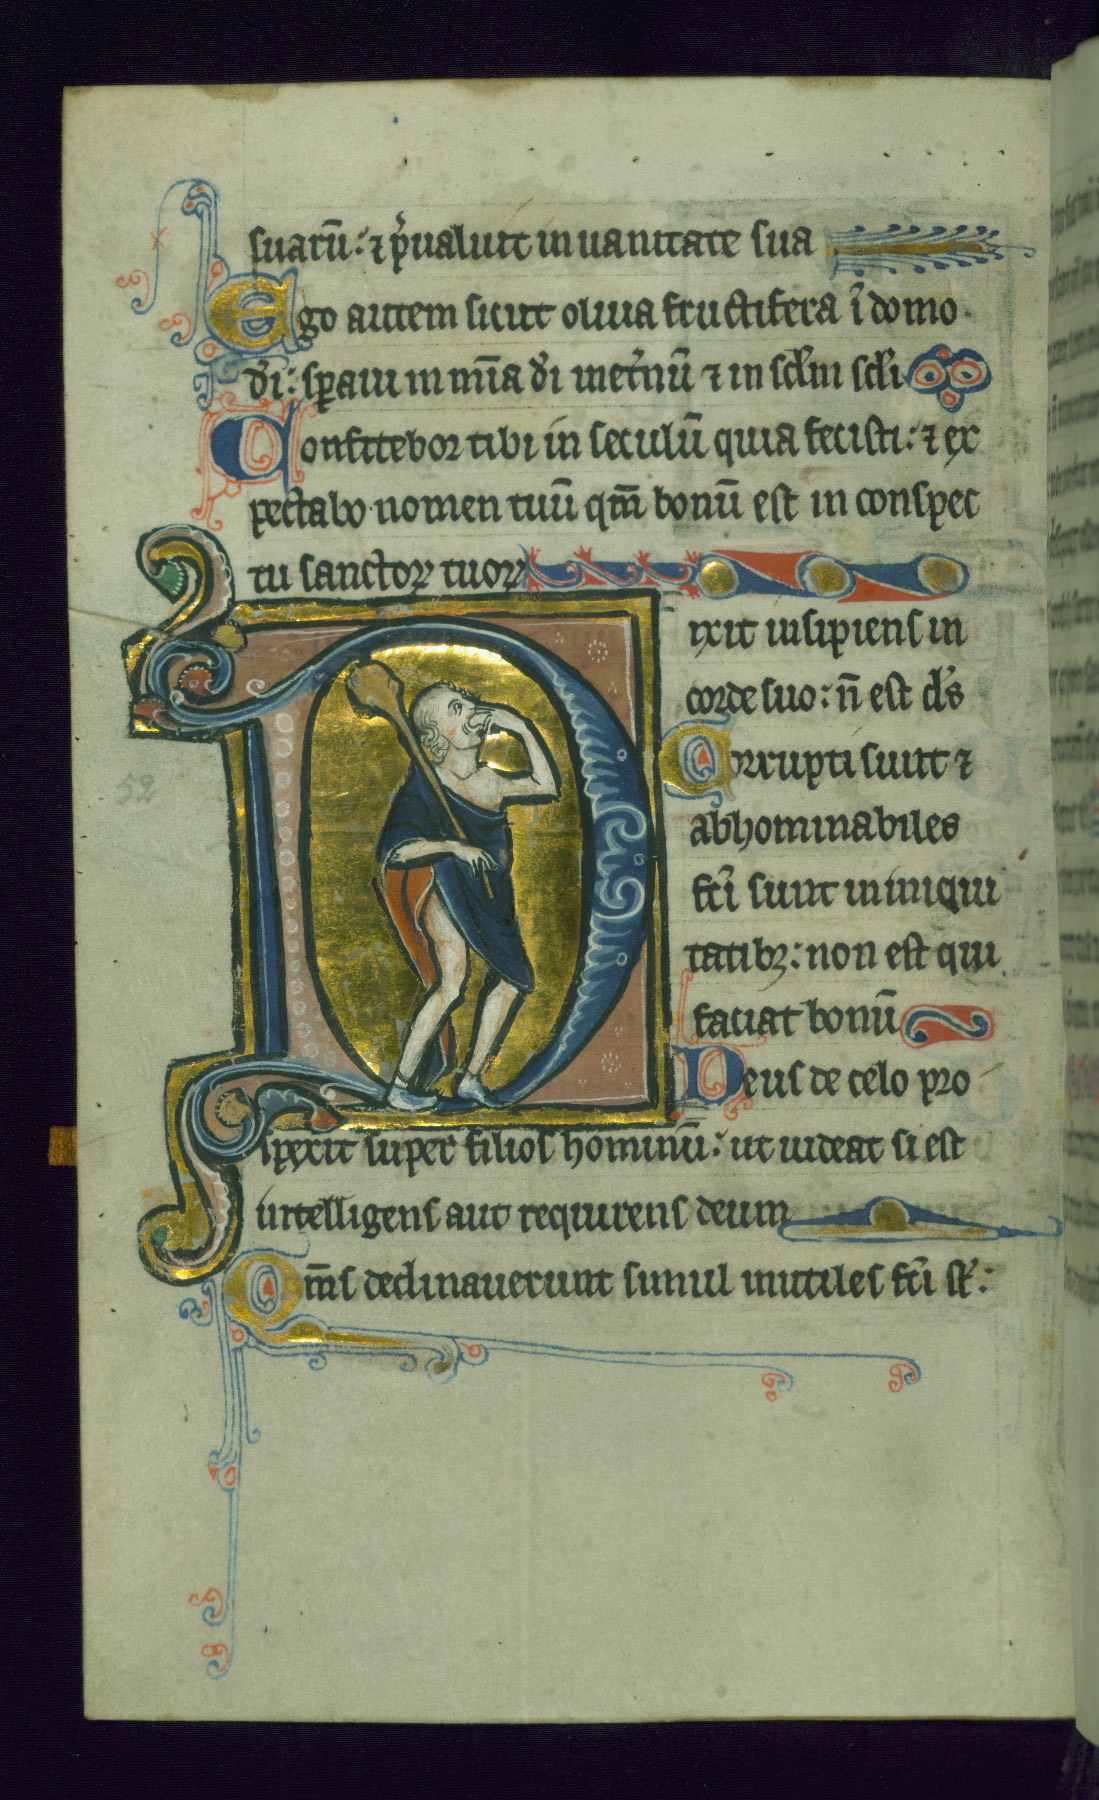 suarū: ⁊ p̄ualuit in uanitate sua
Ego autem sicut oliua fructifera ī domo
dei: speraui in mīa dei inet̄nū ⁊ in sclm scli
Confitebor tibi in seculū quia fecisti: ⁊ ex
pectabo nomen tuū qm̄ bonū est in conspec
tu sanctoꝝ tuoꝝ
Dixit insipiens in
corde suo: n̄ est ds
Corrupti sunt ⁊
abhominabiles
fc̄i sunt in iniqui
tatibꝫ: non est qui
faciat bonū
Deus de celo pro
spexit super filios hominū: ut uideat si est
intelligens aut requirens deum
Om̄s declinauerunt simul inutiles fc̄i st̄:
52